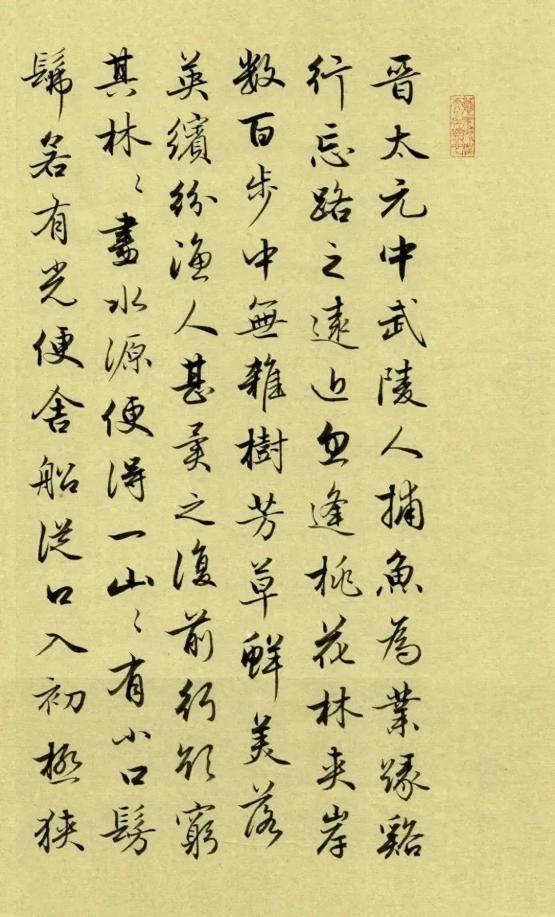 晋太元中武陵人捕魚為業緣谿
行忘路之遠近忽逢桃花林夾岸
数百步中無雜樹芳草鮮美落
英繽紛漁人甚異之復前行欲窮
其林〻盡水源便得一山〻有小口髣
髴若有光便舍船從口入初極狹